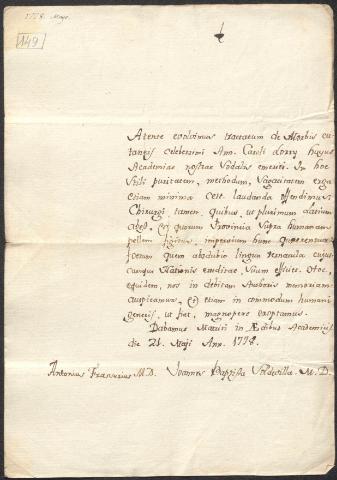 1778. Majo.
149
Attente evolvimus tractatum de Morbis cu-
taneis celeberrimi Ann. Caroli Lorry hujus
Academiae nostrae Sodalis emeriti. In hoc
Stili puritatem, methodum, Sagacitatem erga
etiam minima certe laudanda offendimus.
Chirurgi tamen. Quibus ut plurimum Latium
abest, Et quorum Provincia Supra humanam
pellem imperium hunc
foetum quem abdubio lingua Vernacula cujus-
cumque Nationis eruditae, Suum efficiet. Hoc,
equidem, nos in debitam Authoris memoriam
auspicamur, Et etiam in commodum humani
generis, ut fiat, magnopere exoptamus.
Dabamus Matriti in Ædibus Academicis
die 21. Maji Ann. 1778.
Antonius Franserius M.D. Joannes Baptista Soldevilla. M.D.